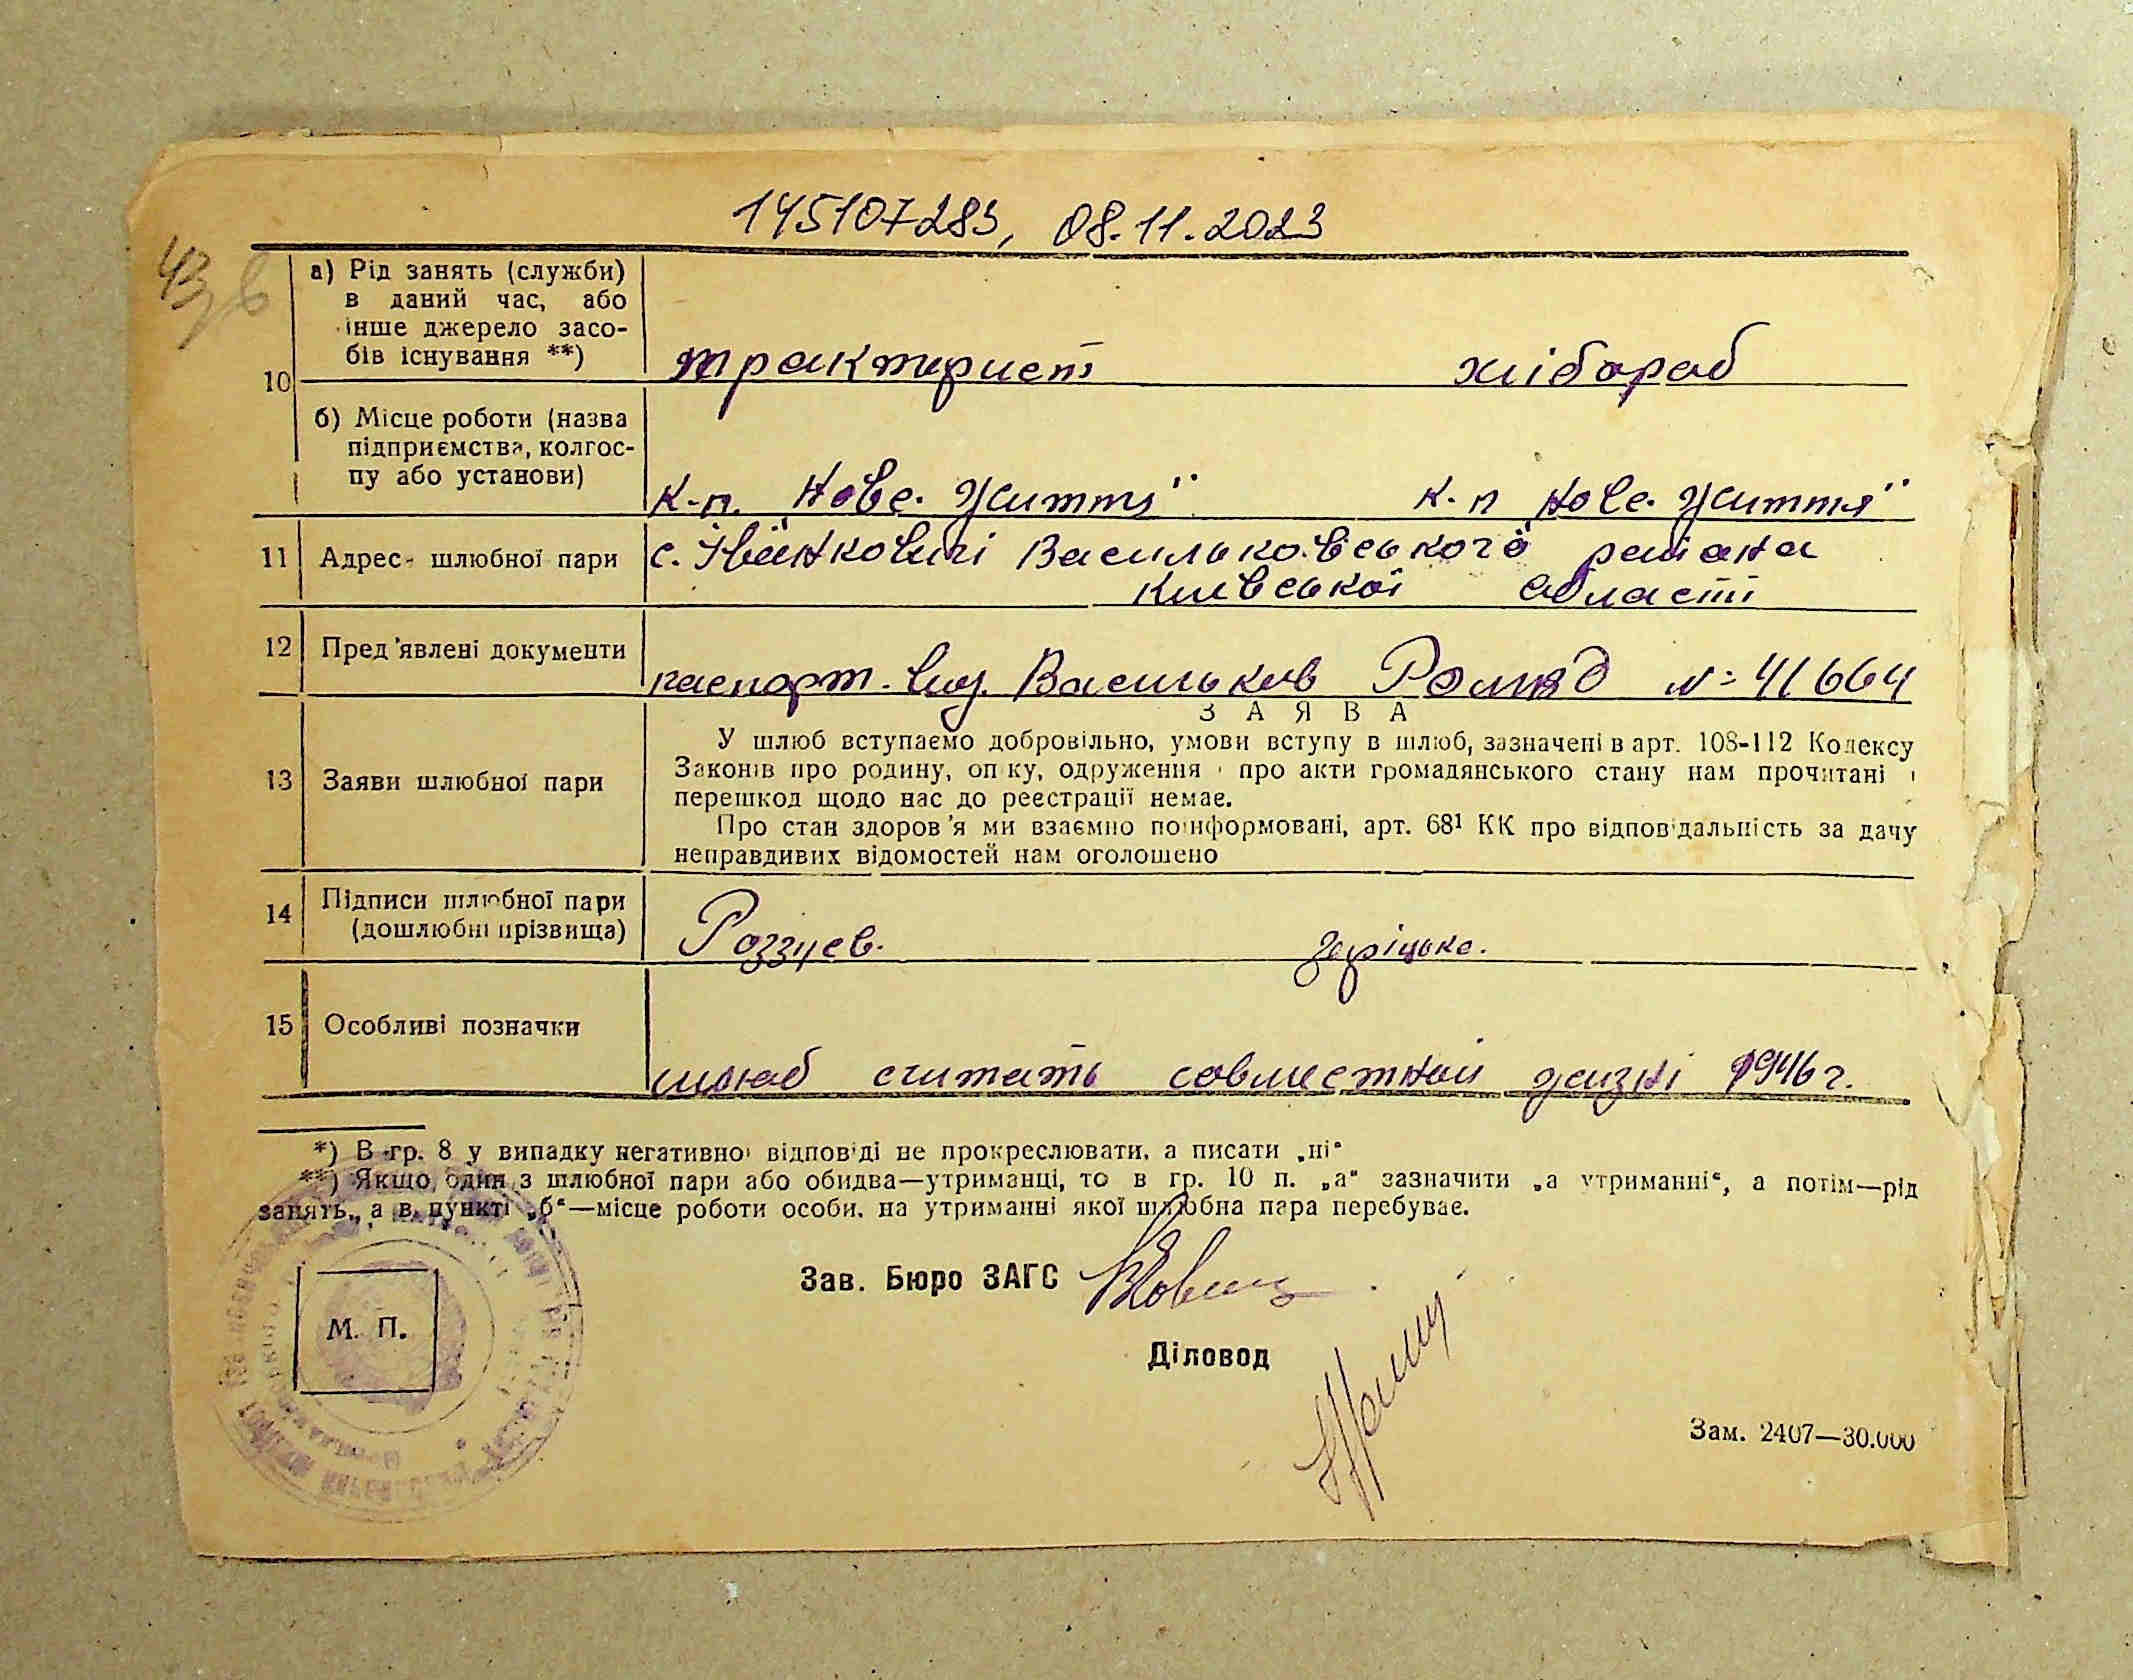 145107283, 08.11.2023
43
10
а) Рід занять (служби)
в даний час, або
інше джерело засо-
бів існування **)
тракторист хлібороб
б) Місце роботи (назва
підприємства, колгос-
пу або установи)
к-п. Нове життя" к-п Нове життя"
11 Адрес шлюбної пари
с. Іванковичі Васильковського района
Київської області
12 Пред'явлені документи
паспорт. вид. Васильков №: 41664
З А Я В А
13 Заяви шлюбної пари
У шлюб вступаємо добровільно, умови вступу в шлюб, зазначені в арт. 108-112 Кодексу
Законів про родину, опіку, одруження і про акти громадянського стану нам прочитані і
перешкод щодо нас до реестрації немає.
Про стан здоров'я ми взаємно поінформовані, арт. 68¹ КК про відповідальність за дачу
неправдивих відомостей нам оголошено
14 Підписи шлюбної пари
(дошлюбні прізвища)
15 Особливі позначки
шлюб считать совместной жизні 1946 г.
*) В гр. 8 у випадку негативної відповіді не прокреслювати, а писати „ні"
**) Якщо один з шлюбної пари або обидва—утриманці, то в гр. 10 п. „а" зазначити „а утриманні", а потім—рід
занять, а в пункті „б"—місце роботи особи, на утриманні якої шлюбна пара перебуває.
Зав. Бюро ЗАГС
М. П.
Діловод
Зам. 2407—30.000